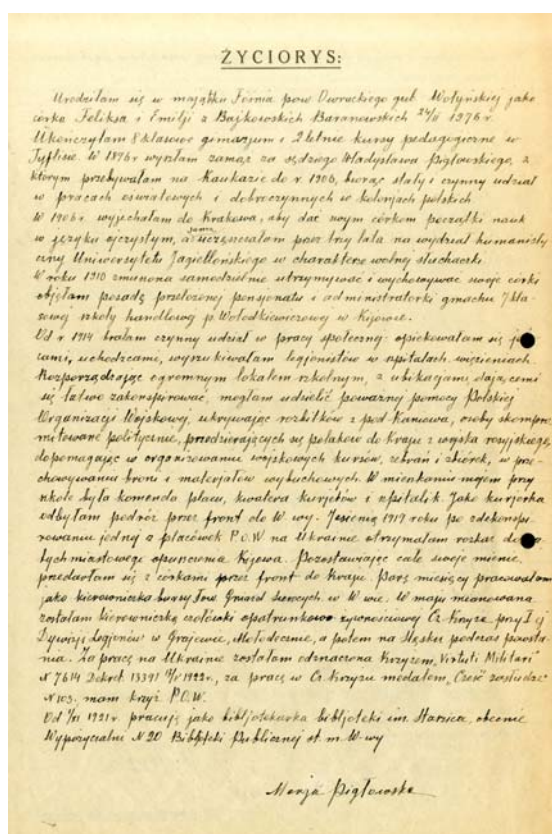 ŻYCIORYS:
Urodziłam się w majątku Fórnia pow. Owruckiego gub. Wołyńskiej jako
córka Feliksa i Emilji z Bajkowskich Baranowskich 24/II 1876 r.
Ukończyłam 8 klasowe gimnazjum i 2 letnie kursy pedagogiczne w
Tyflisie. W 1896 r wyszłam zamąż za sędziego Władysława Pigłowskiego, z
którym przebywałam na Kaukazie do r. 1906, biorąc stały i czynny udział
w pracach oświatowych i dobroczynnych w kolonjach polskich.
W 1906 r. wyjechałam do Krakowa, aby dać swym córkom początki nauk
w języku ojczystym, a sama uczęszczałam przez trzy lata na wydział humanisty
czny Uniwersytetu Jagiellońskiego w charakterze wolnej słuchaczki.
W roku 1910 zmuszona samodzielnie utrzymywać i wychowywać swoje córki
objęłam posadę przełożonej pensjonatu i administratorki gmachu 7 kla-
sowej szkoły handlowej p. Wołodkiewiczowej w Kijowie.
Od r 1914 brałam czynny udział w pracy społecznej opiekowałam się
cami, uchodźcami, wyszukiwałam legjonistów w szpitalach, więzieniach.
Rozporządzając ogromnym lokalem szkolnym, z ubikacjami, dającemi
się łatwo zakonspirować, mogłam udzielić poważnej pomocy Polskiej
Organizacji Wojskowej, ukrywając rozbitków z pod Kaniowa, osoby skompro
mitowane politycznie, przedzierających się polaków do Kraju z wojska rosyjskiego,
dopomagając w organizowaniu wojskowych kursów, zebrań i zbiórek, w prze-
chowywaniu broni i materjałów wybuchowych. W mieszkaniu mojem przy
szkole była komenda placu, kwatera kurjerów i szpitalik. Jako kurjerka
odbyłam podróż przez front do W-wy. Jesienią 1919 roku po zdekonspi-
rowaniu jednej z placówek P.O.W na Ukrainie otrzymałam rozkaz
tychmiastowego opuszczenia Kijowa. Pozostawiając całe swoje mienie,
przedarłam się z córkami przez front do Kraju. Parę miesięcy pracowałam
jako kierowniczka bursy Gniazd sierocych w W-wie. W maju mianowana
zostałam kierowniczką czołówki opatrunkowo żywnościowej Cz. Krzyża przy I ej
Dywizji Legjonów w Grajewie, Mołodecznie, a potem na Śląsku podczas powsta-
nia. Za pracę na Ukrainie zostałam odznaczona Krzyżem "Virtuti Militari"
N 7614 Dekret. 13391 1922 r., za pracę w Cz. Krzyżu medalem,
N 103. mam krzyż P.O.W.
Od 1921 r. pracuję jako bibljotekarka bibljoteki im. Staszica, obecnie
Wypożyczalni N 20 Bibljoteki Publicznej st. m. W-wy
Marja Pigłowska